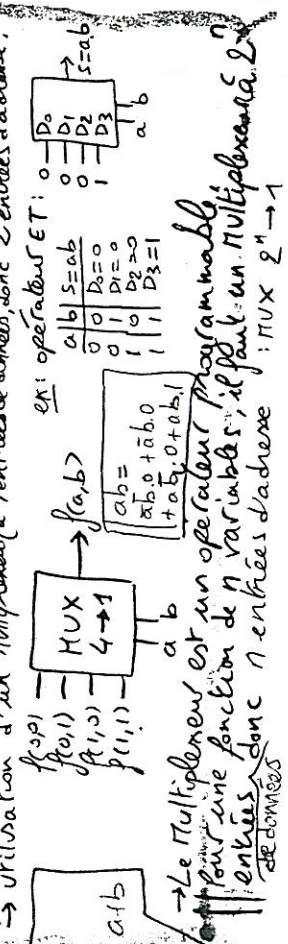 → Utilisation d'un
entrées de données, donc 2 entrées d'adresse,
a+b
f(0,0)
f(0,1)
f(1,0)
f(1,1)
MUX
4→1
→ f(a,b)
a b
ab=
a̅b̅.0+a̅b.0
+ab̅.0+ab.1
ex: opérateur ET:
a b | S=ab
0 0 | D0=0
0 1 | D1=0
1 0 | D2=0
1 1 | D3=1
0 D0
0 D1
0 D2
1 D3
→ S=a,b
a b
→ Le Multiplexeur est un opérateur programmable
Pour une fonction de n variables, il faut un multiplexeur à 2ⁿ
entrées de données donc n entrées d'adresse : MUX 2ⁿ → 1